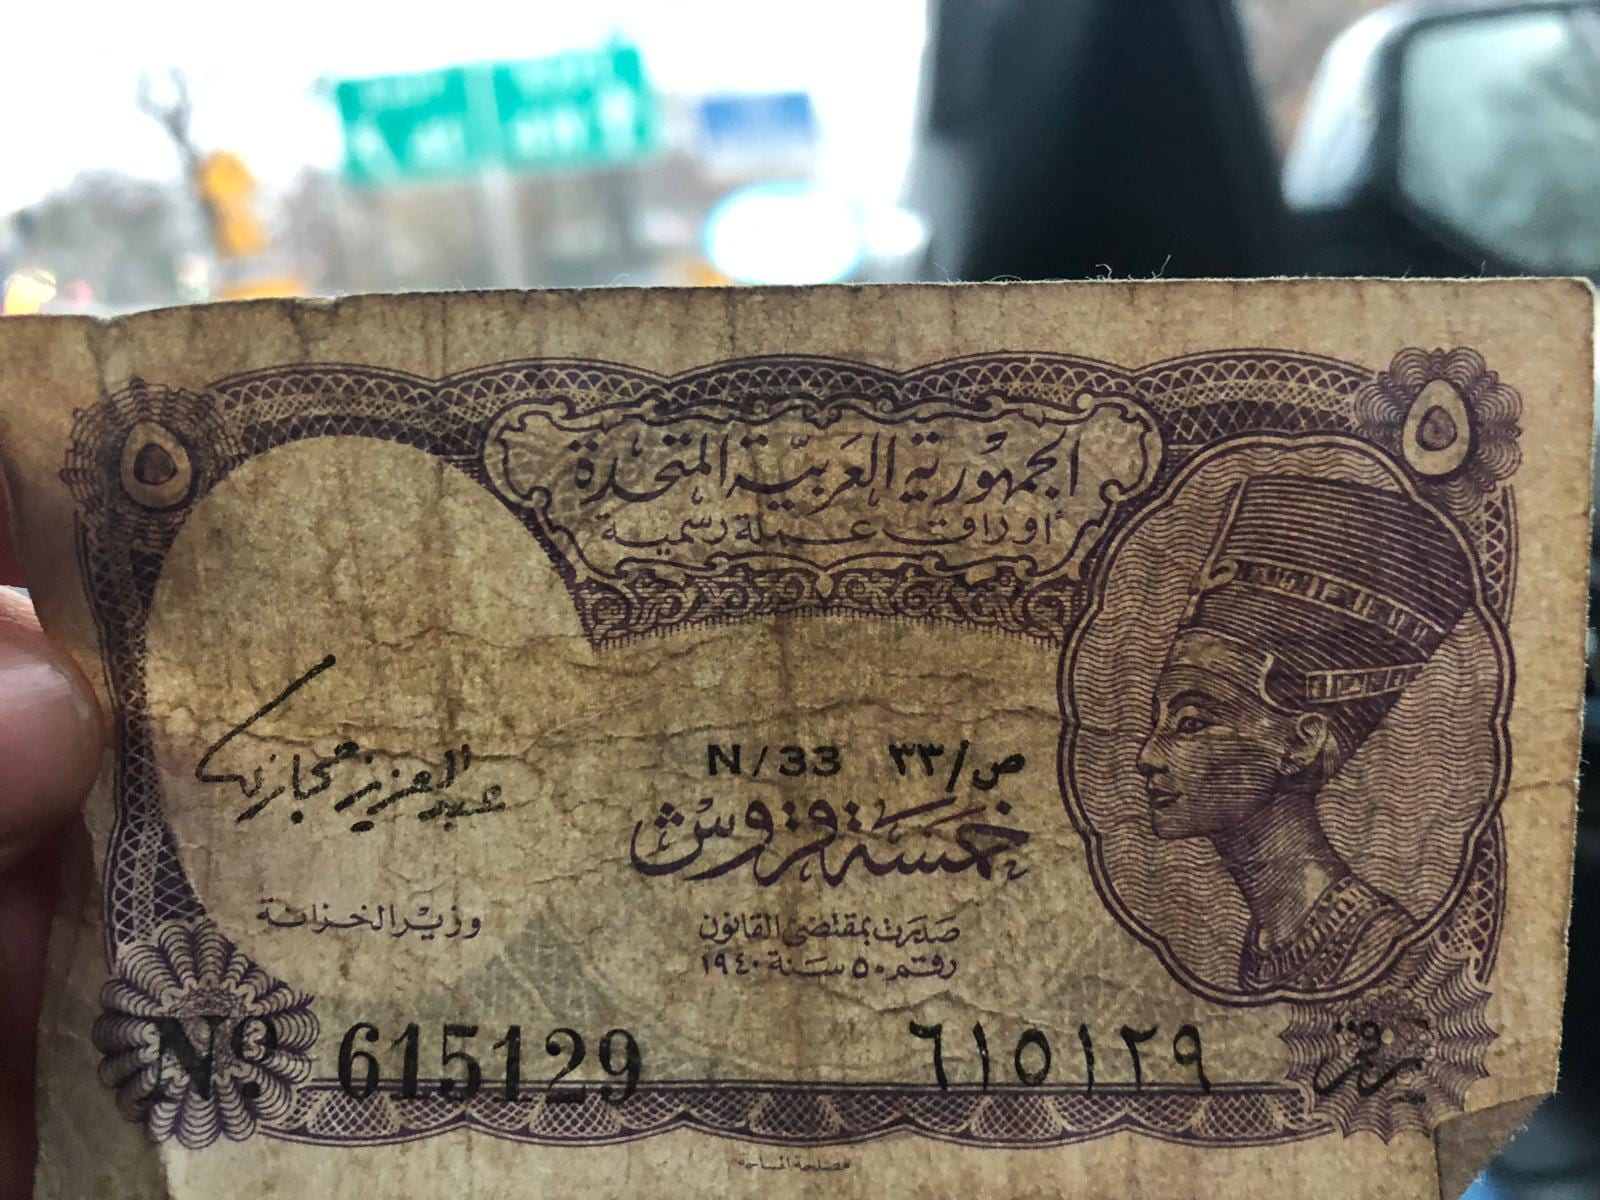 ٥
٥
الجمهورية العربية المتحدة
أوراق عملة رسمية
N/33 ص/٣٣
خمسة قروش
عبد العزيز حجازي
وزير الخزانة
صدرت بمقتضى القانون
رقم ٥٠ سنة ١٩٤٠
Nº 615129
٦١٥١٢٩
مصلحة المساحة